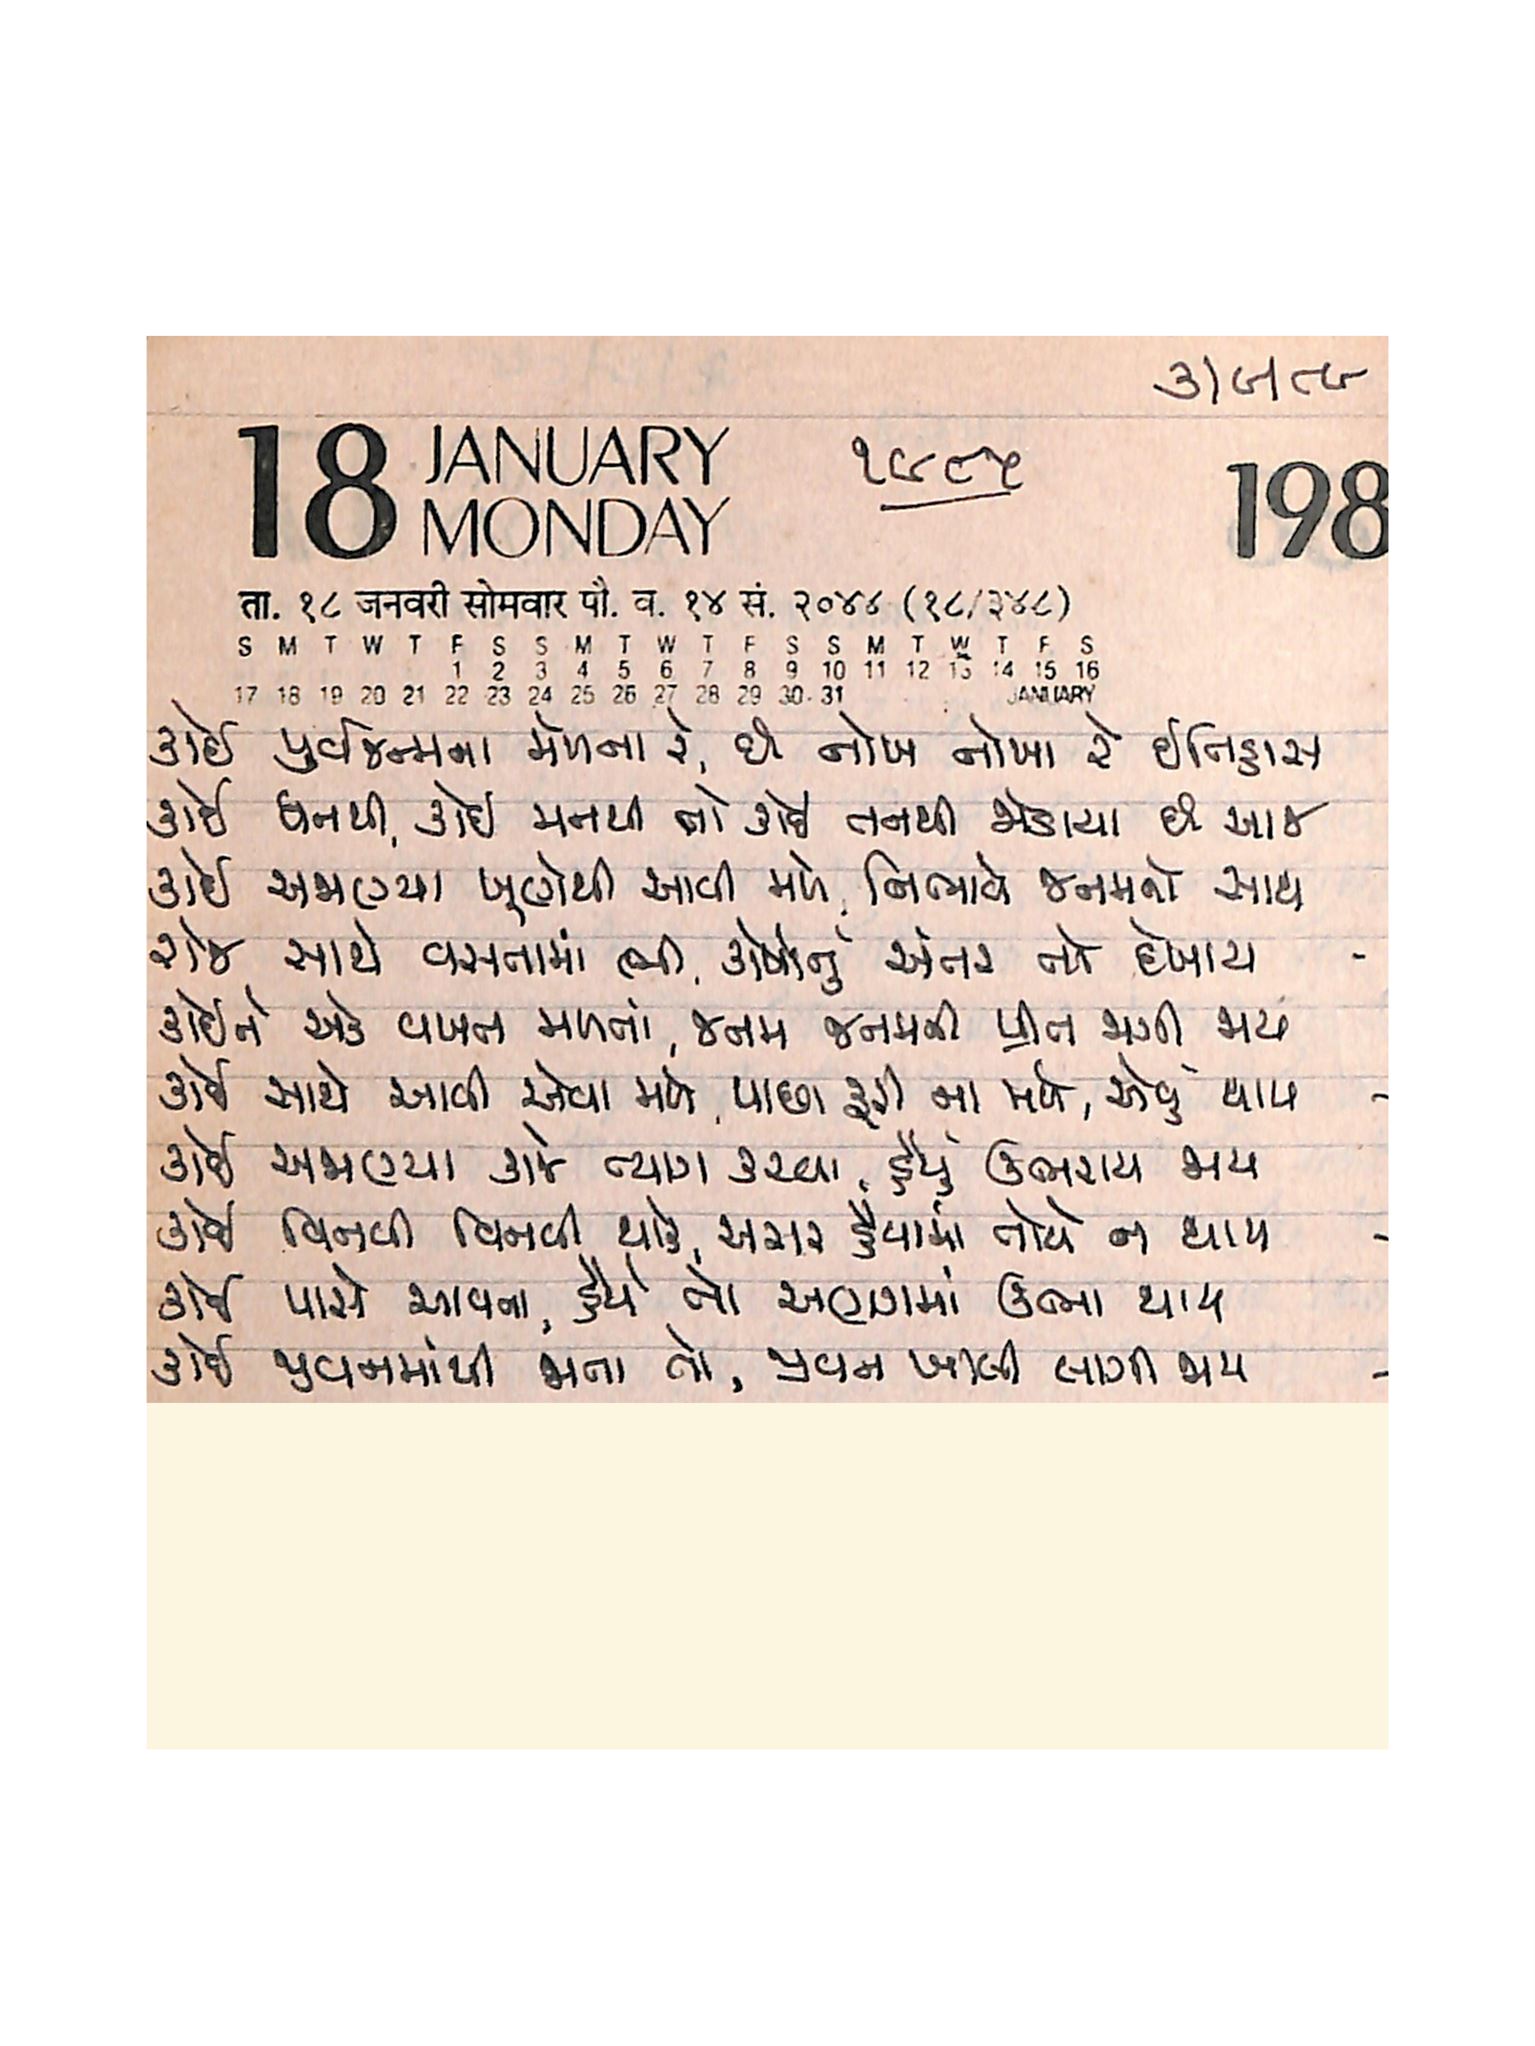 ૩।૭।૮૯
18 JANUARY ૧૯૮૫ 198
MONDAY
ता. १८ जनवरी सोमवार पौ. व. १४ सं. २०४४ (१८/३४८)
S M T W T F S S M T W T F S S M T W T F S
1 2 3 4 5 6 7 8 9 10 11 12 13 14 15 16
17 18 19 20 21 22 23 24 25 26 27 28 29 30 31 JANUARY
કોઈ પુર્વજન્મના મેળના રે, છે નોખ નોખા રે ઈતિહાસ
કોઈ ધનથી, કોઈ મનથી તો કોઈ તનથી જોડાયા છે આજ
કોઈ અજાણ્યા ખૂણેથી આવી મળે, નિભાવે જનમનો સાથ
રોજ સાથે વસતામાં ભી, કોઈનું અંતર નવ દેખાય -
કોઈને એક વખત મળતાં, જનમ જનમની પ્રીત જાગી જાય
કોઈ સાથે આવી એવા મળે, પાછા ફરી ના મળે, એવું થાય -
કોઈ અજાણ્યા કાજે ત્યાગ કરવા, હૈયું ઉભરાય જાય
કોઈ વિનવી વિનવી થાકે, અસર હૈયામાં તોયે ન થાય -
કોઈ પાસે આવતા, હૈયે તો અણગમાં ઉભા થાય
કોઈ જીવનમાંથી જાતા તો, જીવન ખાલી લાગી જાય -